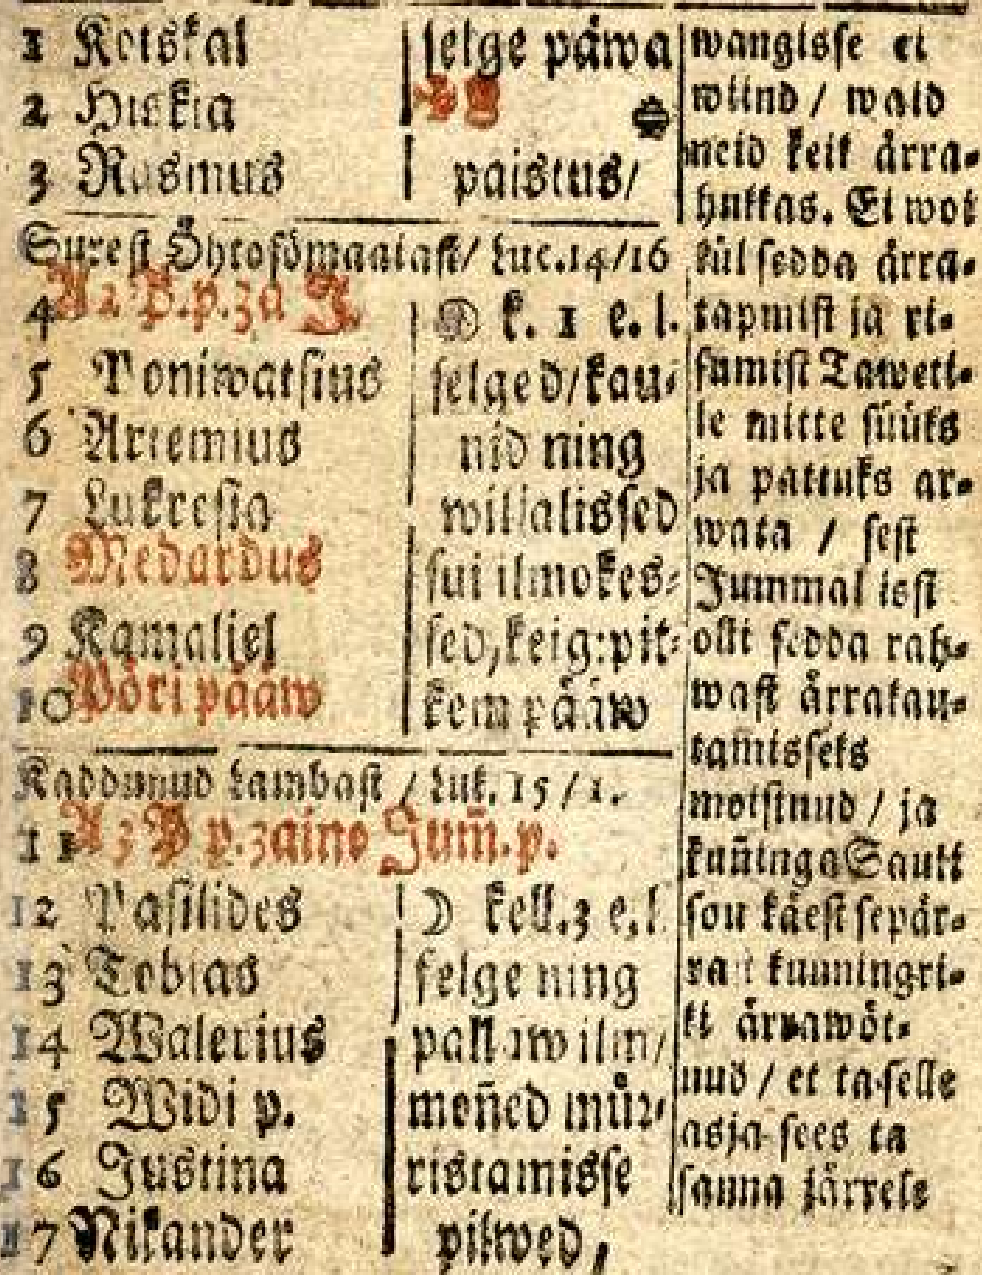 1 Kotskal
2 Hiskia
3 Rasmus
Surest Öhtosömaaiast/ Luc.14/16
4 A2 P.p.3a J.
5 Poniwatsius
6 Artemius
7 Lukresia
8 Medardus
9 Kamaliel
10 Pöri pääw
Kaddunud Lambast / Luk. 15/1.
11 A3 P p.3aino Jum̃.p.
12 Pasilides
13 Tobias
14 Walerius
15 Widi p.
16 Justina
17 Nikander
selge päwa
paistus/
k. 1 e. l.
selged/kau-
nid ning
wiljalissed
sui ilmokes-
sed, keig:pit-
kem pääw
☽ kell.3 e.l.
selge ning
pallaw ilm/
meñed mür-
ristamisse
pilwed,
wangisse ei
wiind / waid
neid keik ärra-
hukkas. Ei wot
kül sedda ärra-
tapmist ja ri-
sumist Taweti-
le mitte süüks
ja pattuks ar-
wata / sest
Jummal isst
olli sedda rah-
wast ärrakau-
tamisseks
motsinud / ja
kuñinga Sauli
sou käest sepär-
rast kunningri-
ki ärrawöt-
nud / et ta selle
asja sees ta
sanna järrele